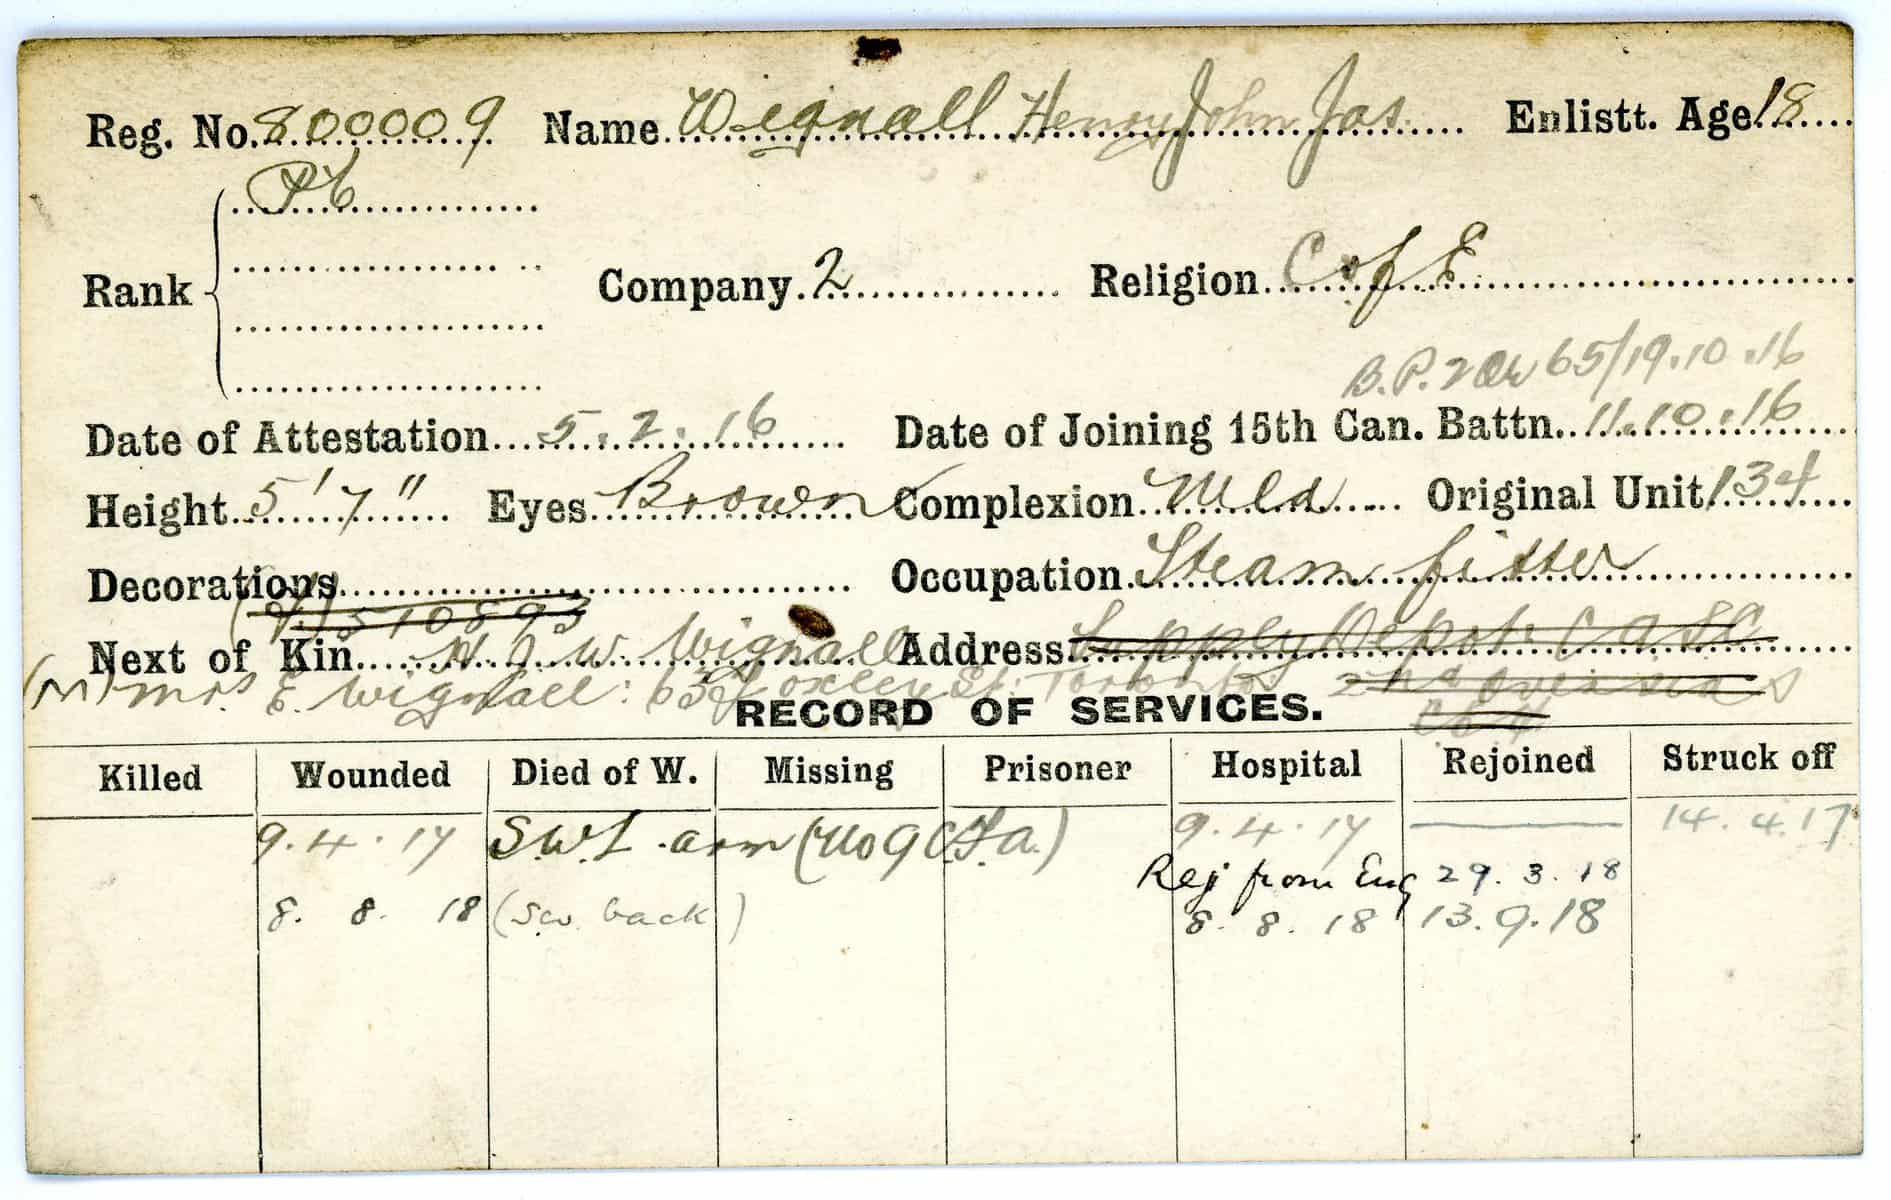 Reg. No. 800009 Name Wignall Henry John Jas. Enlistt. Age 18
Pte
Rank Company 2 Religion C of E
B.P. 2 Or 65/19.10.16
Date of Attestation 5.2.16 Date of Joining 15th Can. Battn. 11.10.16
Height 5'7" Eyes Brown Complexion Med Original Unit 134
Decorations Occupation Steam fitter
(F) 510893
Next of Kin H. J. W. Wignall Address Supply Depot C A S C
(M) Mrs E. Wignall: 65 Oxley St: Toronto 2nd Overseas
RECORD OF SERVICES.
Killed Wounded Died of W. Missing Prisoner Hospital Rejoined Struck off
9.4.17 S.W. L. arm (No 9 C.F.A.) 9.4.17 14.4.17
Rej from Eng 29.3.18
8. 8. 18 (S.W. back) 8. 8. 18 13.9.18